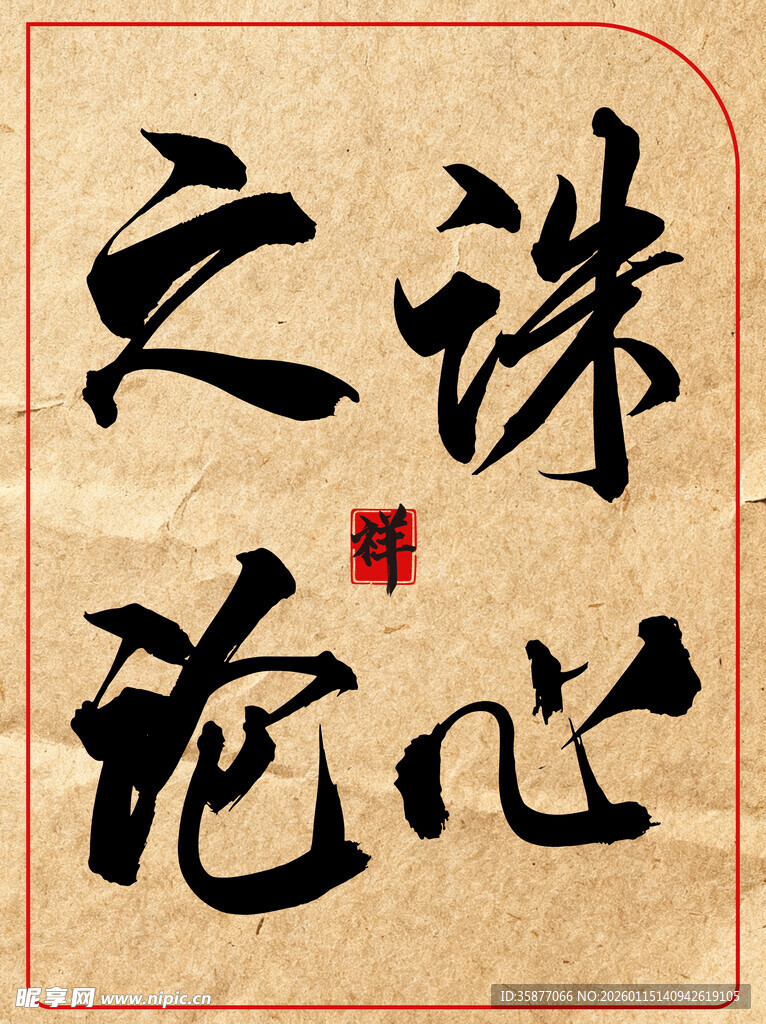 诛心
之论
祥
昵享网 www.nipic.cn
ID:35877066 NO:20260115140942619105